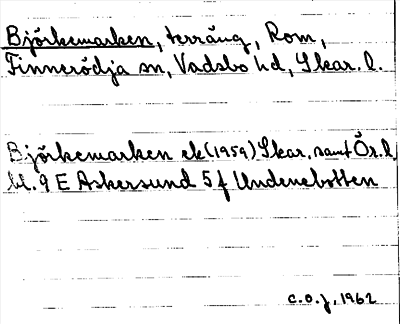 Björkemarken, terräng, Rom,
Finnerödja sn, Vadsbo hd, Skar. l.
Björkemarken ek (1959) Skar. samt Ör. l.
bl. 9 E Askersund 5 f Undenebotten
c.o.j, 1962